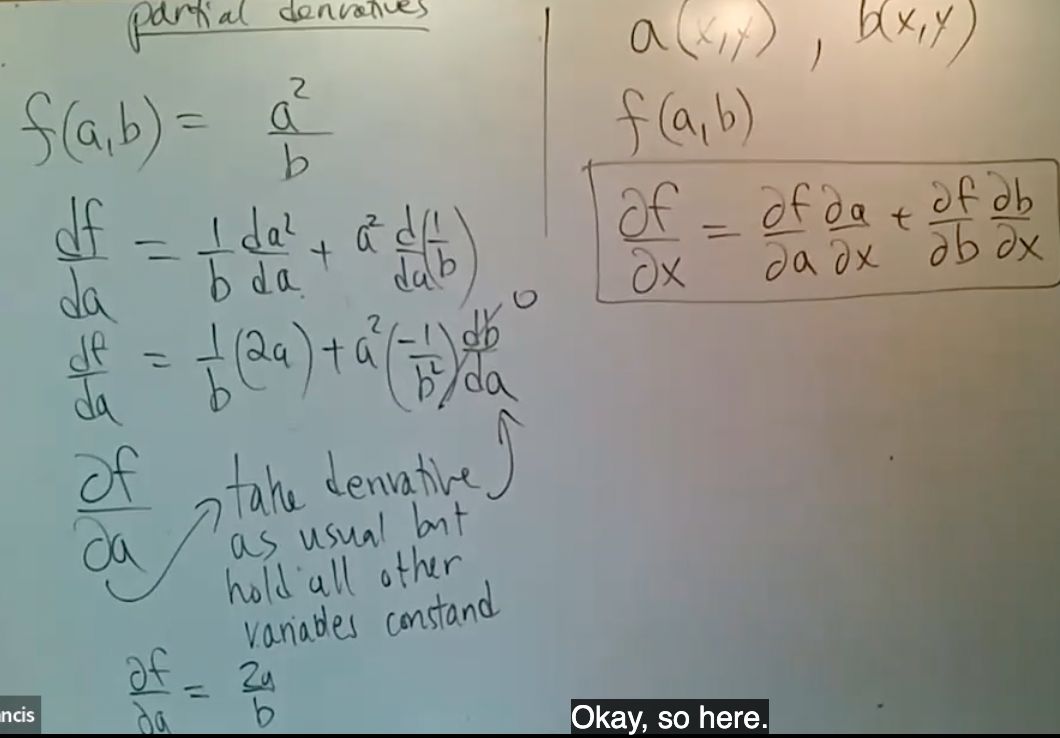 partial derivatives
f(a,b) = a²/b
df/da = 1/b da²/da + a² d/da(1/b)
df/da = 1/b (2a) + a² (-1/b²) db/da 0
∂f/∂a
take derivative
as usual but
hold all other
variables constand
∂f/∂a = 2a/b
a(x,y) , b(x,y)
f(a,b)
∂f/∂x = ∂f/∂a ∂a/∂x + ∂f/∂b ∂b/∂x
ncis
Okay, so here.